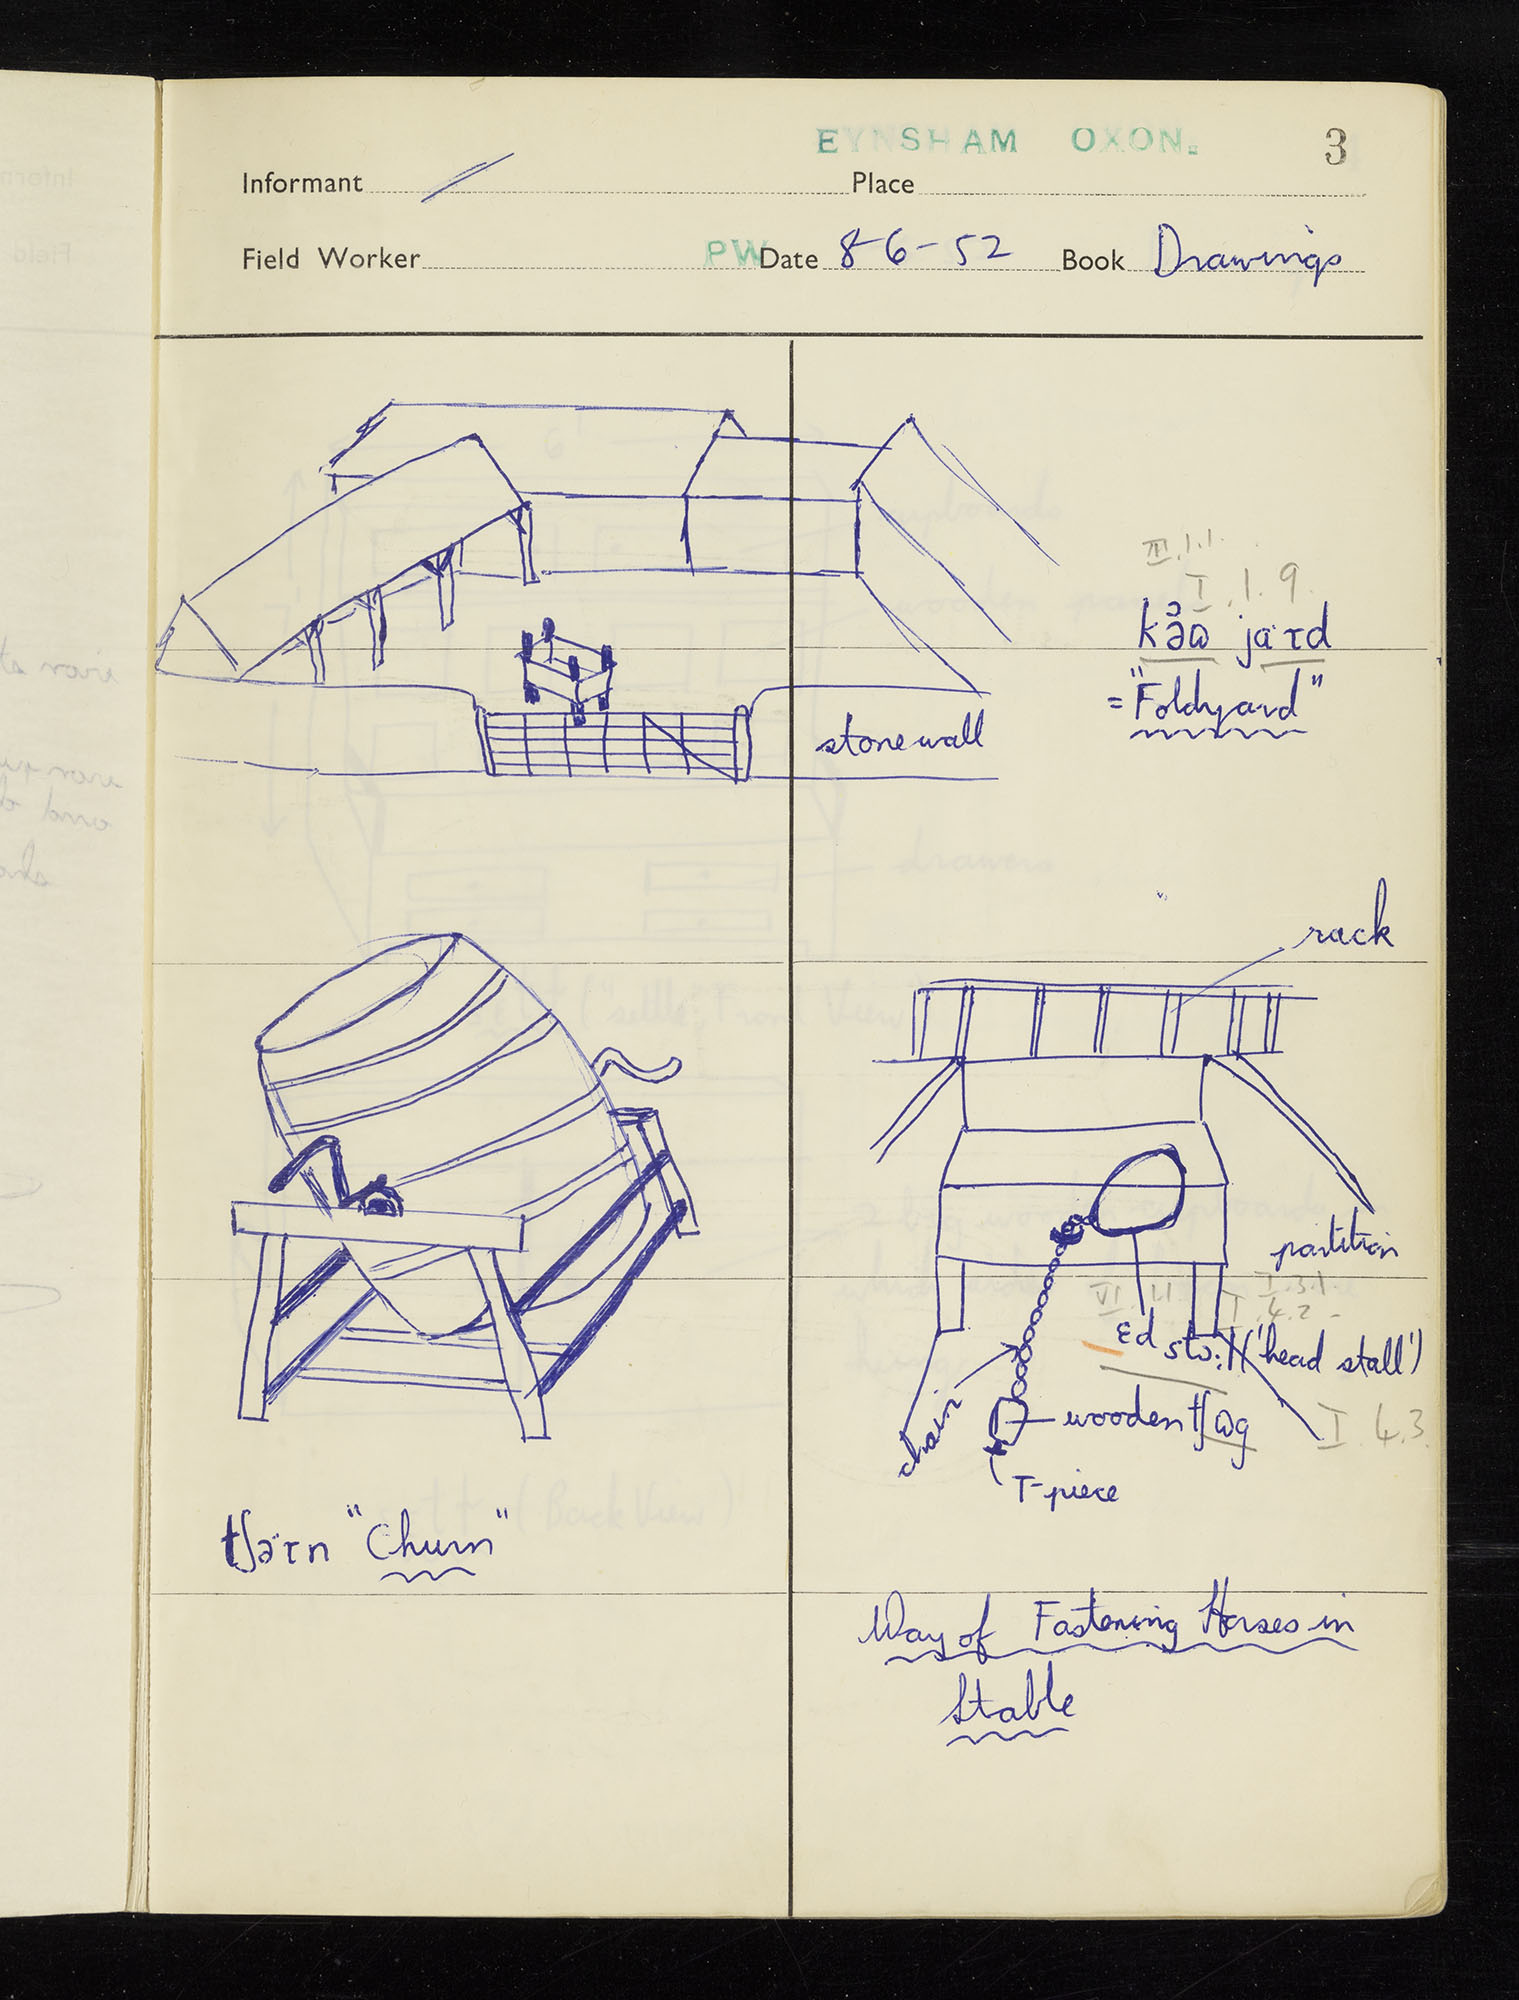 EYNSHAM OXON.
3
Informant
Place
Field Worker
PW
Date 8-6-52
Book Drawings
III.1.1.
I.1.9.
jaːɾd
= "Foldyard"
stone wall
rack
partition
VI.
I.3.1
I.4.2
ɛd stɔːɫ ('head stall')
chain
wooden tʃɒg
I.4.3.
T-piece
"Churn"
Way of Fastening Horses in
Stable